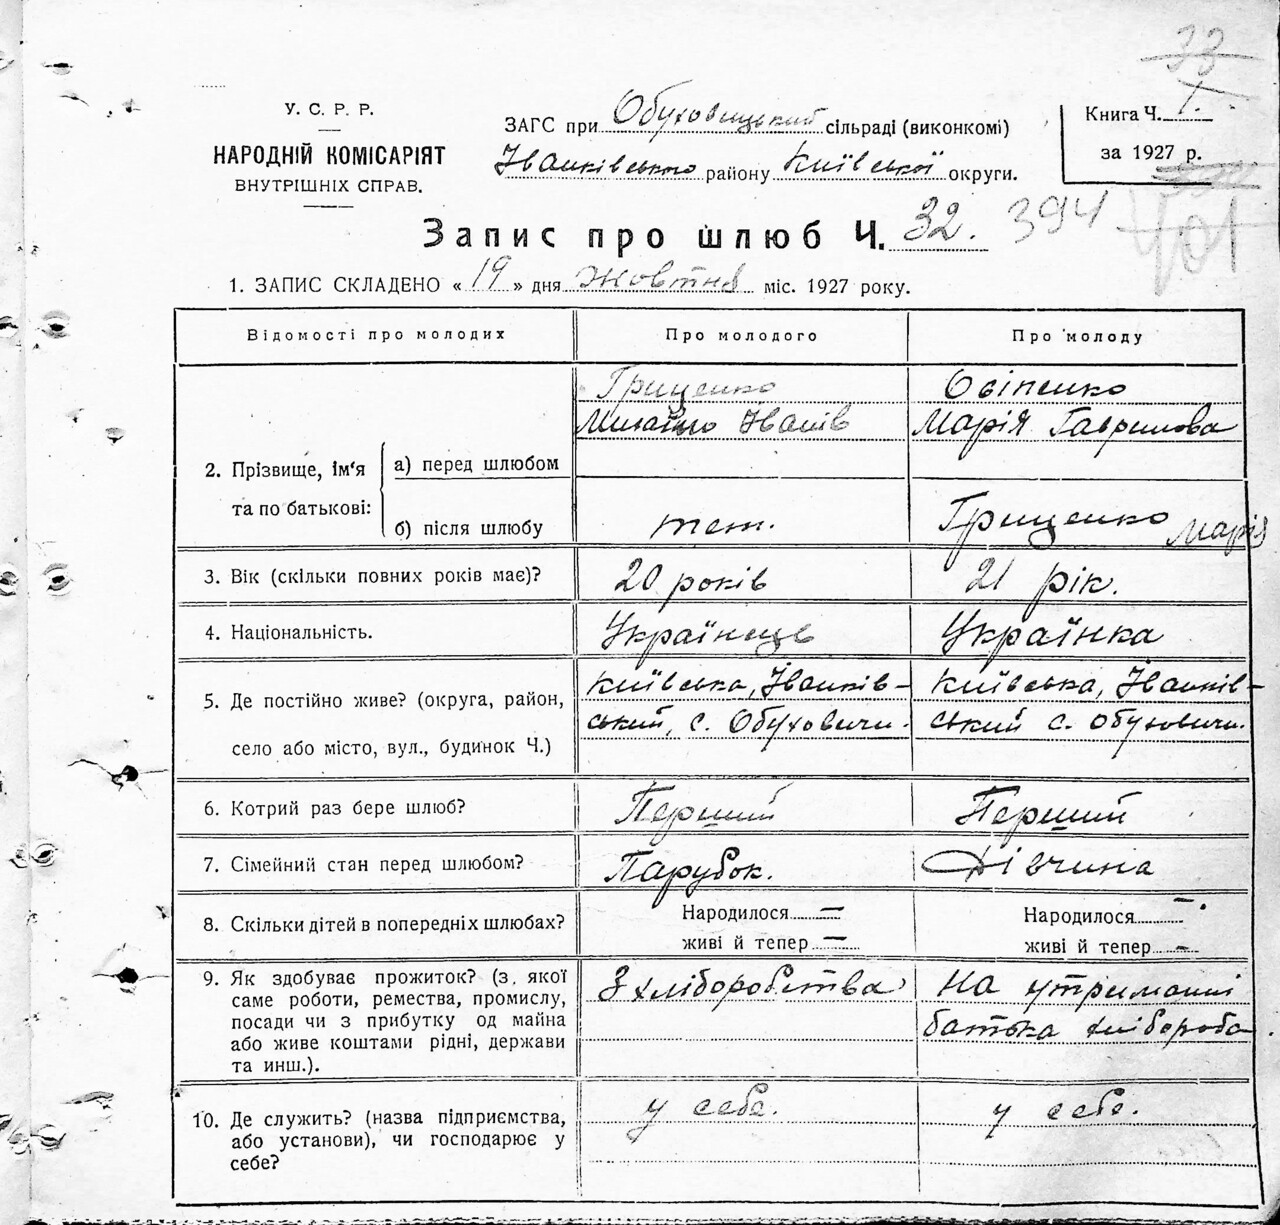 33
У. С. Р. Р.
НАРОДНІЙ КОМІСАРІЯТ
ВНУТРІШНІХ СПРАВ.
ЗАГС при Обуховицький сільраді (виконкомі)
Іванківського району Київської округи.
Книга Ч. 1.
за 1927 р.
Запис про шлюб Ч. 32. 394
401
1. ЗАПИС СКЛАДЕНО « 19 » дня Жовтня міс. 1927 року.
Відомості про молодих Про молодого Про молоду
2. Прізвище, ім'я та по батькові:
а) перед шлюбом
Грищенко Михайло Іванів
Осіпенко Марія Гаврилова
б) після шлюбу
теж.
Грищенко Марія
3. Вік (скільки повних років має)? 20 років 21 рік.
4. Національність. Українець Українка
5. Де постійно живе? (округа, район,
село або місто, вул., будинок Ч.)
Київська, Іванків-
ський, с. Обуховичи.
Київська, Іванків-
ський с. Обуховичи.
6. Котрий раз бере шлюб? Перший Перший
7. Сімейний стан перед шлюбом? Парубок. Дівчина
8. Скільки дітей в попередніх шлюбах?
Народилося —
живі й тепер —
Народилося —
живі й тепер —
9. Як здобуває прожиток? (з якої
саме роботи, ремества, промислу,
посади чи з прибутку од майна
або живе коштами рідні, держави
та инш.).
З хліборобства
На утриманні
батька хлібороба
10. Де служить? (назва підприємства,
або установи), чи господарює у
себе?
у себе.
у себе.